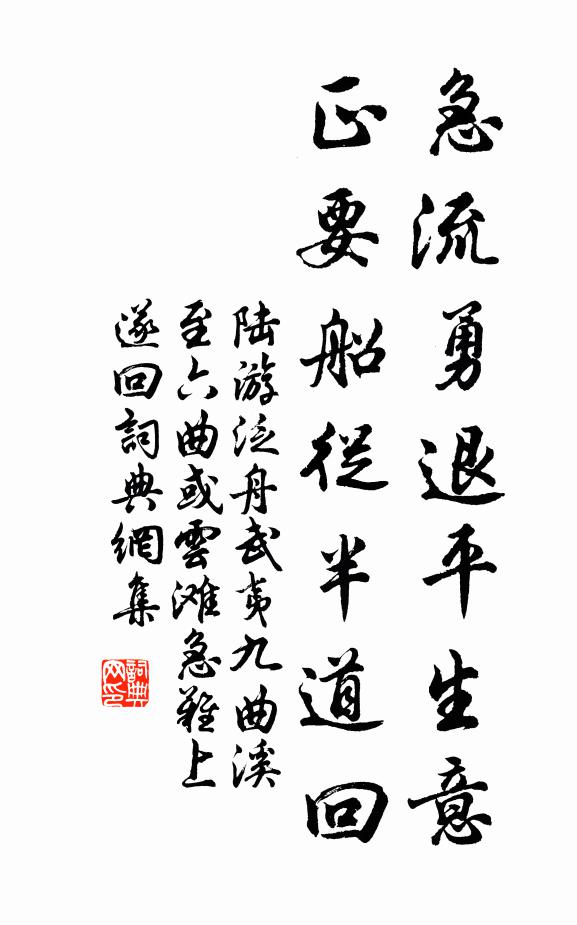 急流勇退平生意
正要船從半道回
陆游泛舟武夷九曲溪
至六曲或雲滩急難上
遂回詞典網集
詞典网印